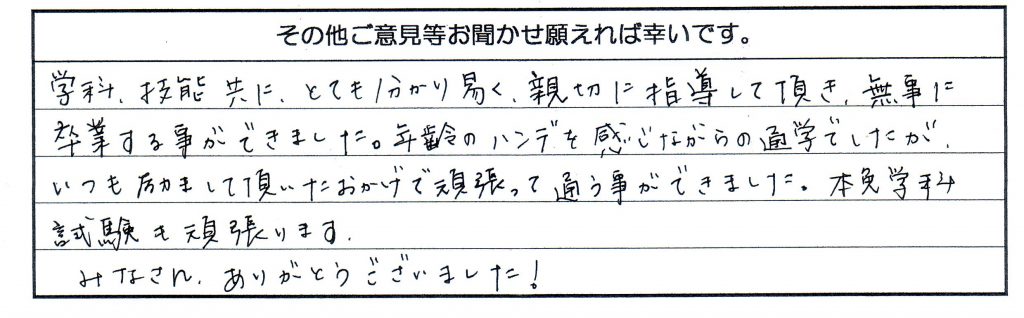 その他ご意見等お聞かせ願えれば幸いです。
学科、技能共に、とても分かり易く、親切に指導して頂き、無事に
卒業する事ができました。年齢のハンデを感じながらの通学でしたが、
いつも励まして頂いたおかげで頑張って通う事ができました。本免学科
試験も頑張ります。
みなさん、ありがとうございました!